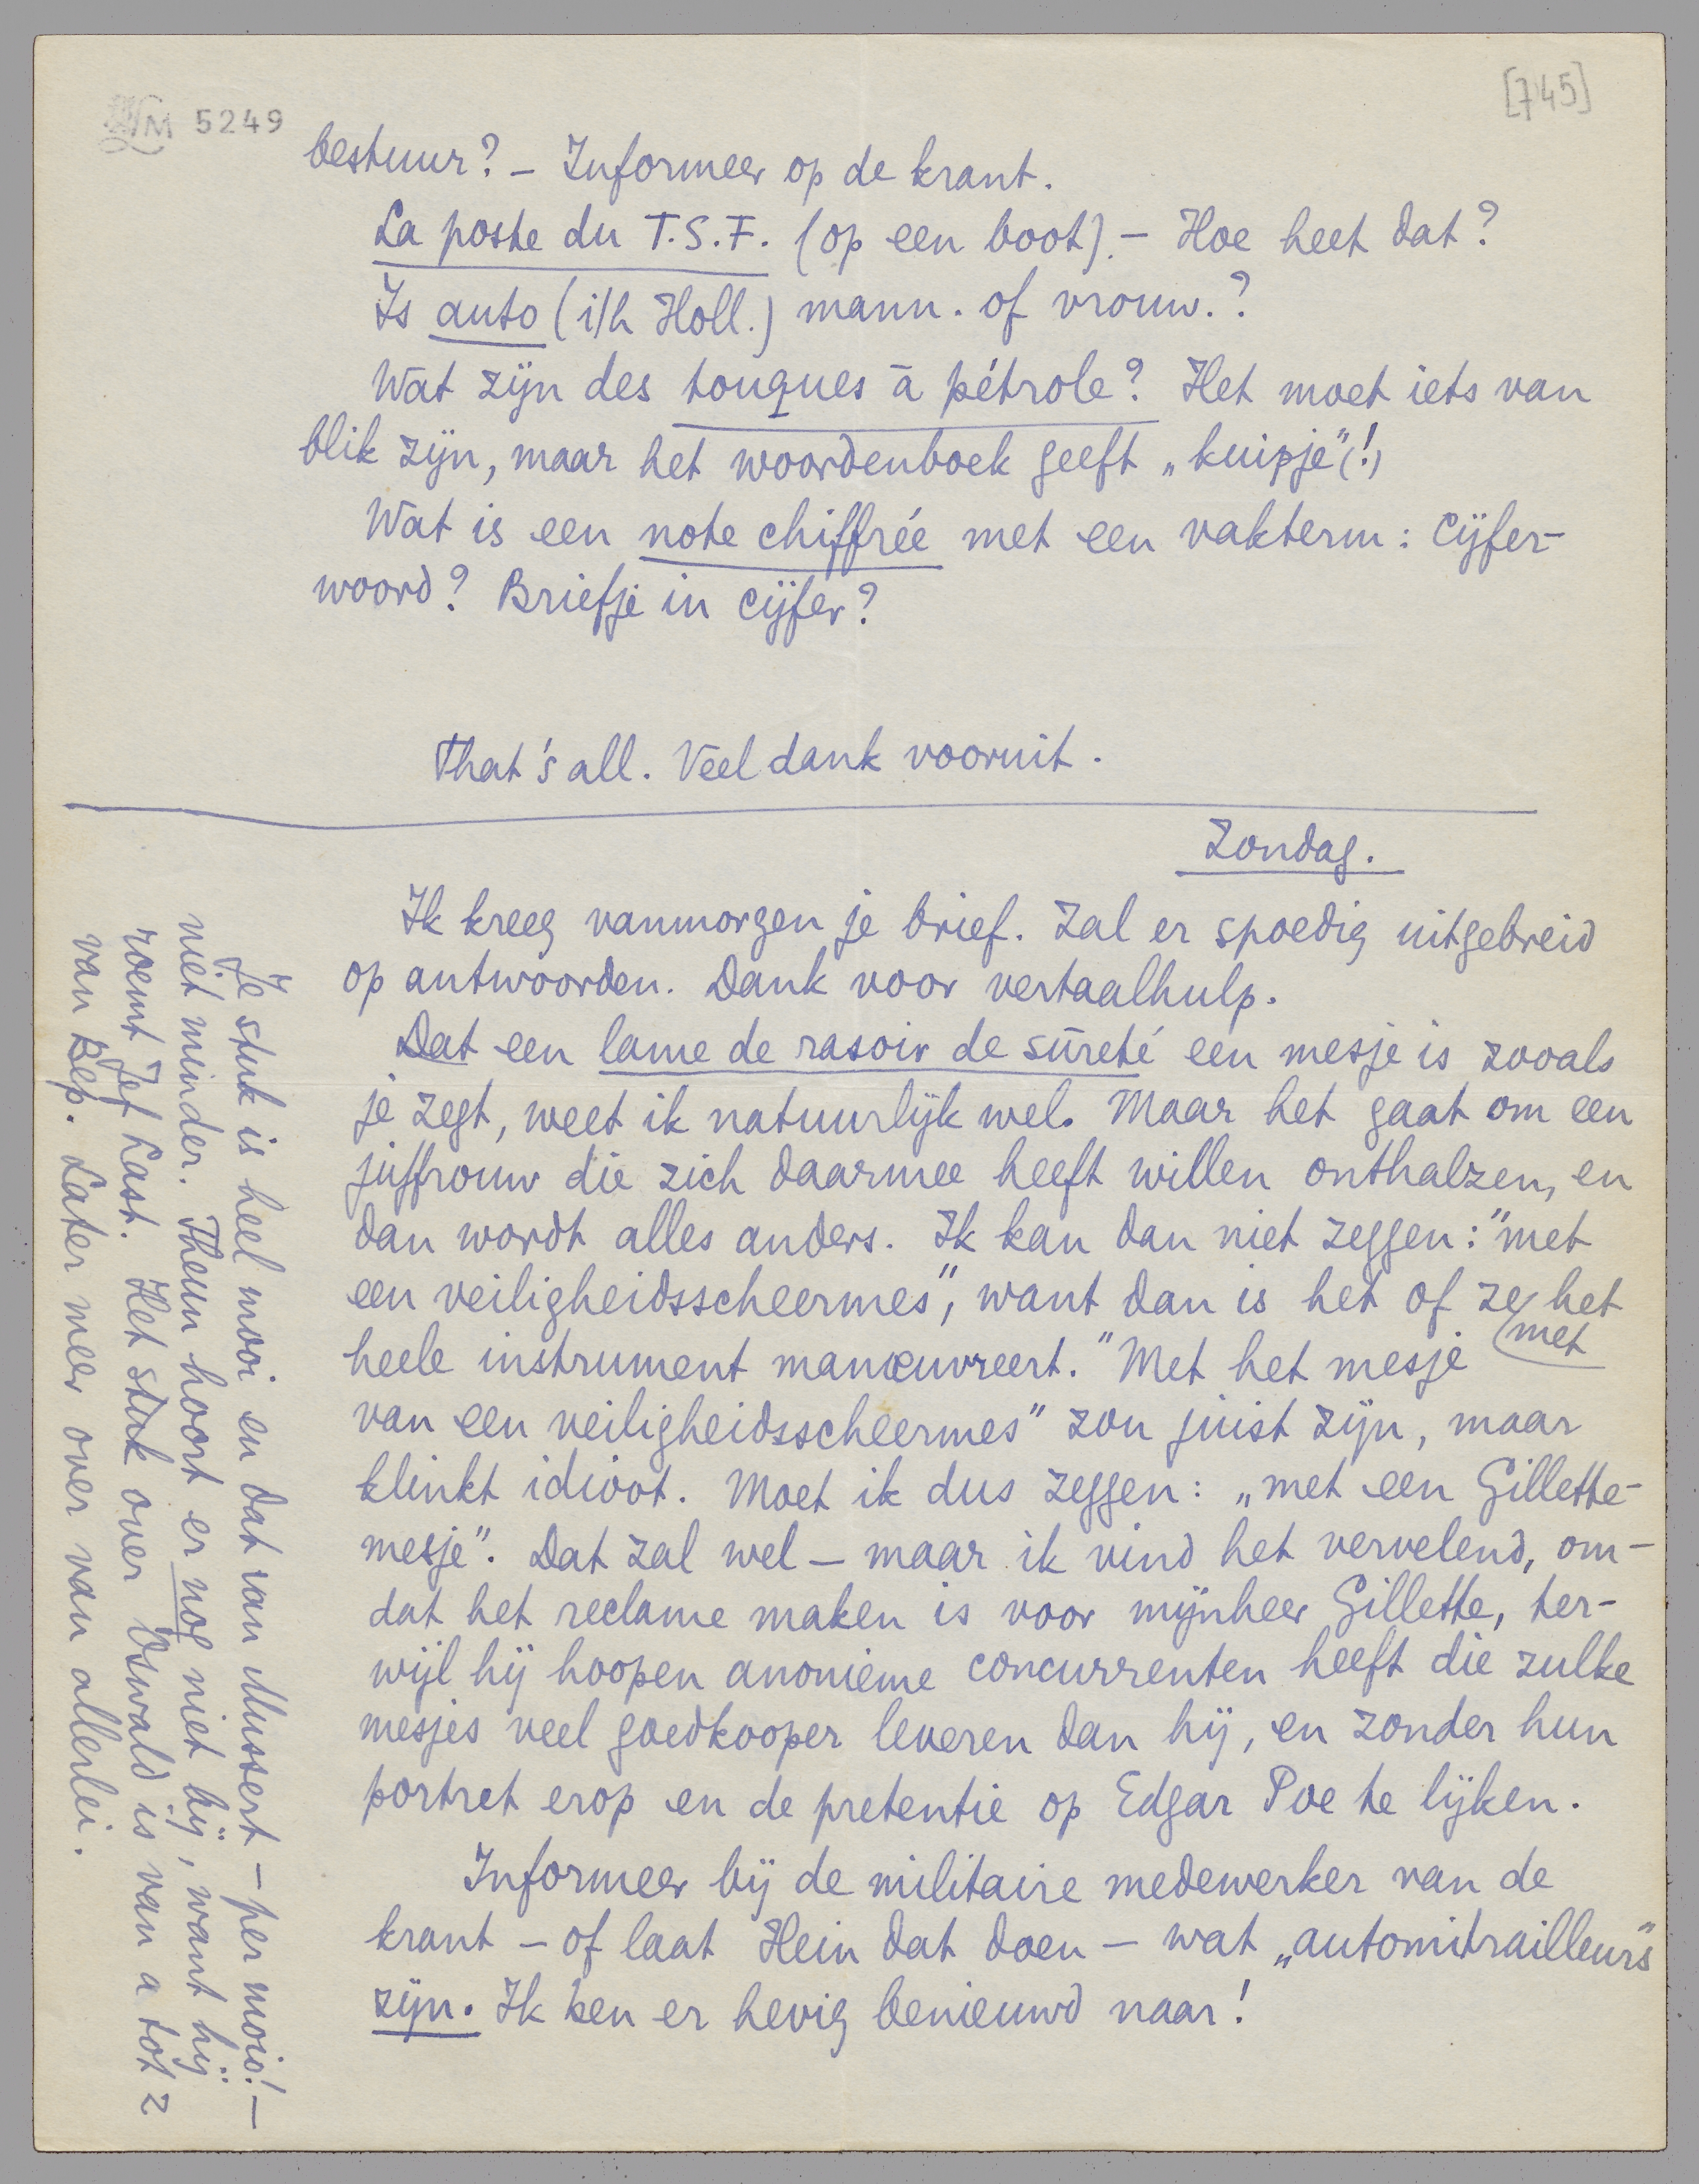 LM 5249
[745]
bestuur? – Informeer op de krant.
La poste du T.S.F. (op een boot). – Hoe heet dat?
Is auto (i/h Holl.) mann. of vrouw.?
Wat zijn des touques à pétrole? Het moet iets van
blik zijn, maar het woordenboek geeft „kuipje"(!)
Wat is een note chiffrée met een vakterm: cijfer-
woord? Briefje in cijfer?
That's all. Veel dank vooruit.
Zondag.
Ik kreeg vanmorgen je brief. Zal er spoedig uitgebreid
op antwoorden. Dank voor vertaalhulp.
Dat een lame de rasoir de sûreté een mesje is zooals
je zegt, weet ik natuurlijk wel. Maar het gaat om een
juffrouw die zich daarmee heeft willen onthalzen, en
dan wordt alles anders. Ik kan dan niet zeggen: "met
een veiligheidsscheermes", want dan is het of ze het
met
heele instrument manœuvreert. "Met het mesje
van een veiligheidsscheermes" zou juist zijn, maar
klinkt idioot. Moet ik dus zeggen: „met een Gillette-
mesje". Dat zal wel – maar ik vind het vervelend, om-
dat het reclame maken is voor mijnheer Gillette, ter-
wijl hij hoopen anonieme concurrenten heeft die zulke
mesjes veel goedkooper leveren dan hij, en zonder hun
portret erop en de pretentie op Edgar Poe te lijken.
Informeer bij de militaire medewerker van de
krant – of laat Hein dat doen – wat „automitrailleurs"
zijn. Ik ben er hevig benieuwd naar!
Je stuk is heel mooi en dat van Mussert – per mois! –
niet minder. Theun hoort er nog niet bij, want hij
roemt Jef Last. Het stuk over Oswald is van a tot z
van Bep. Later meer over van allerlei.